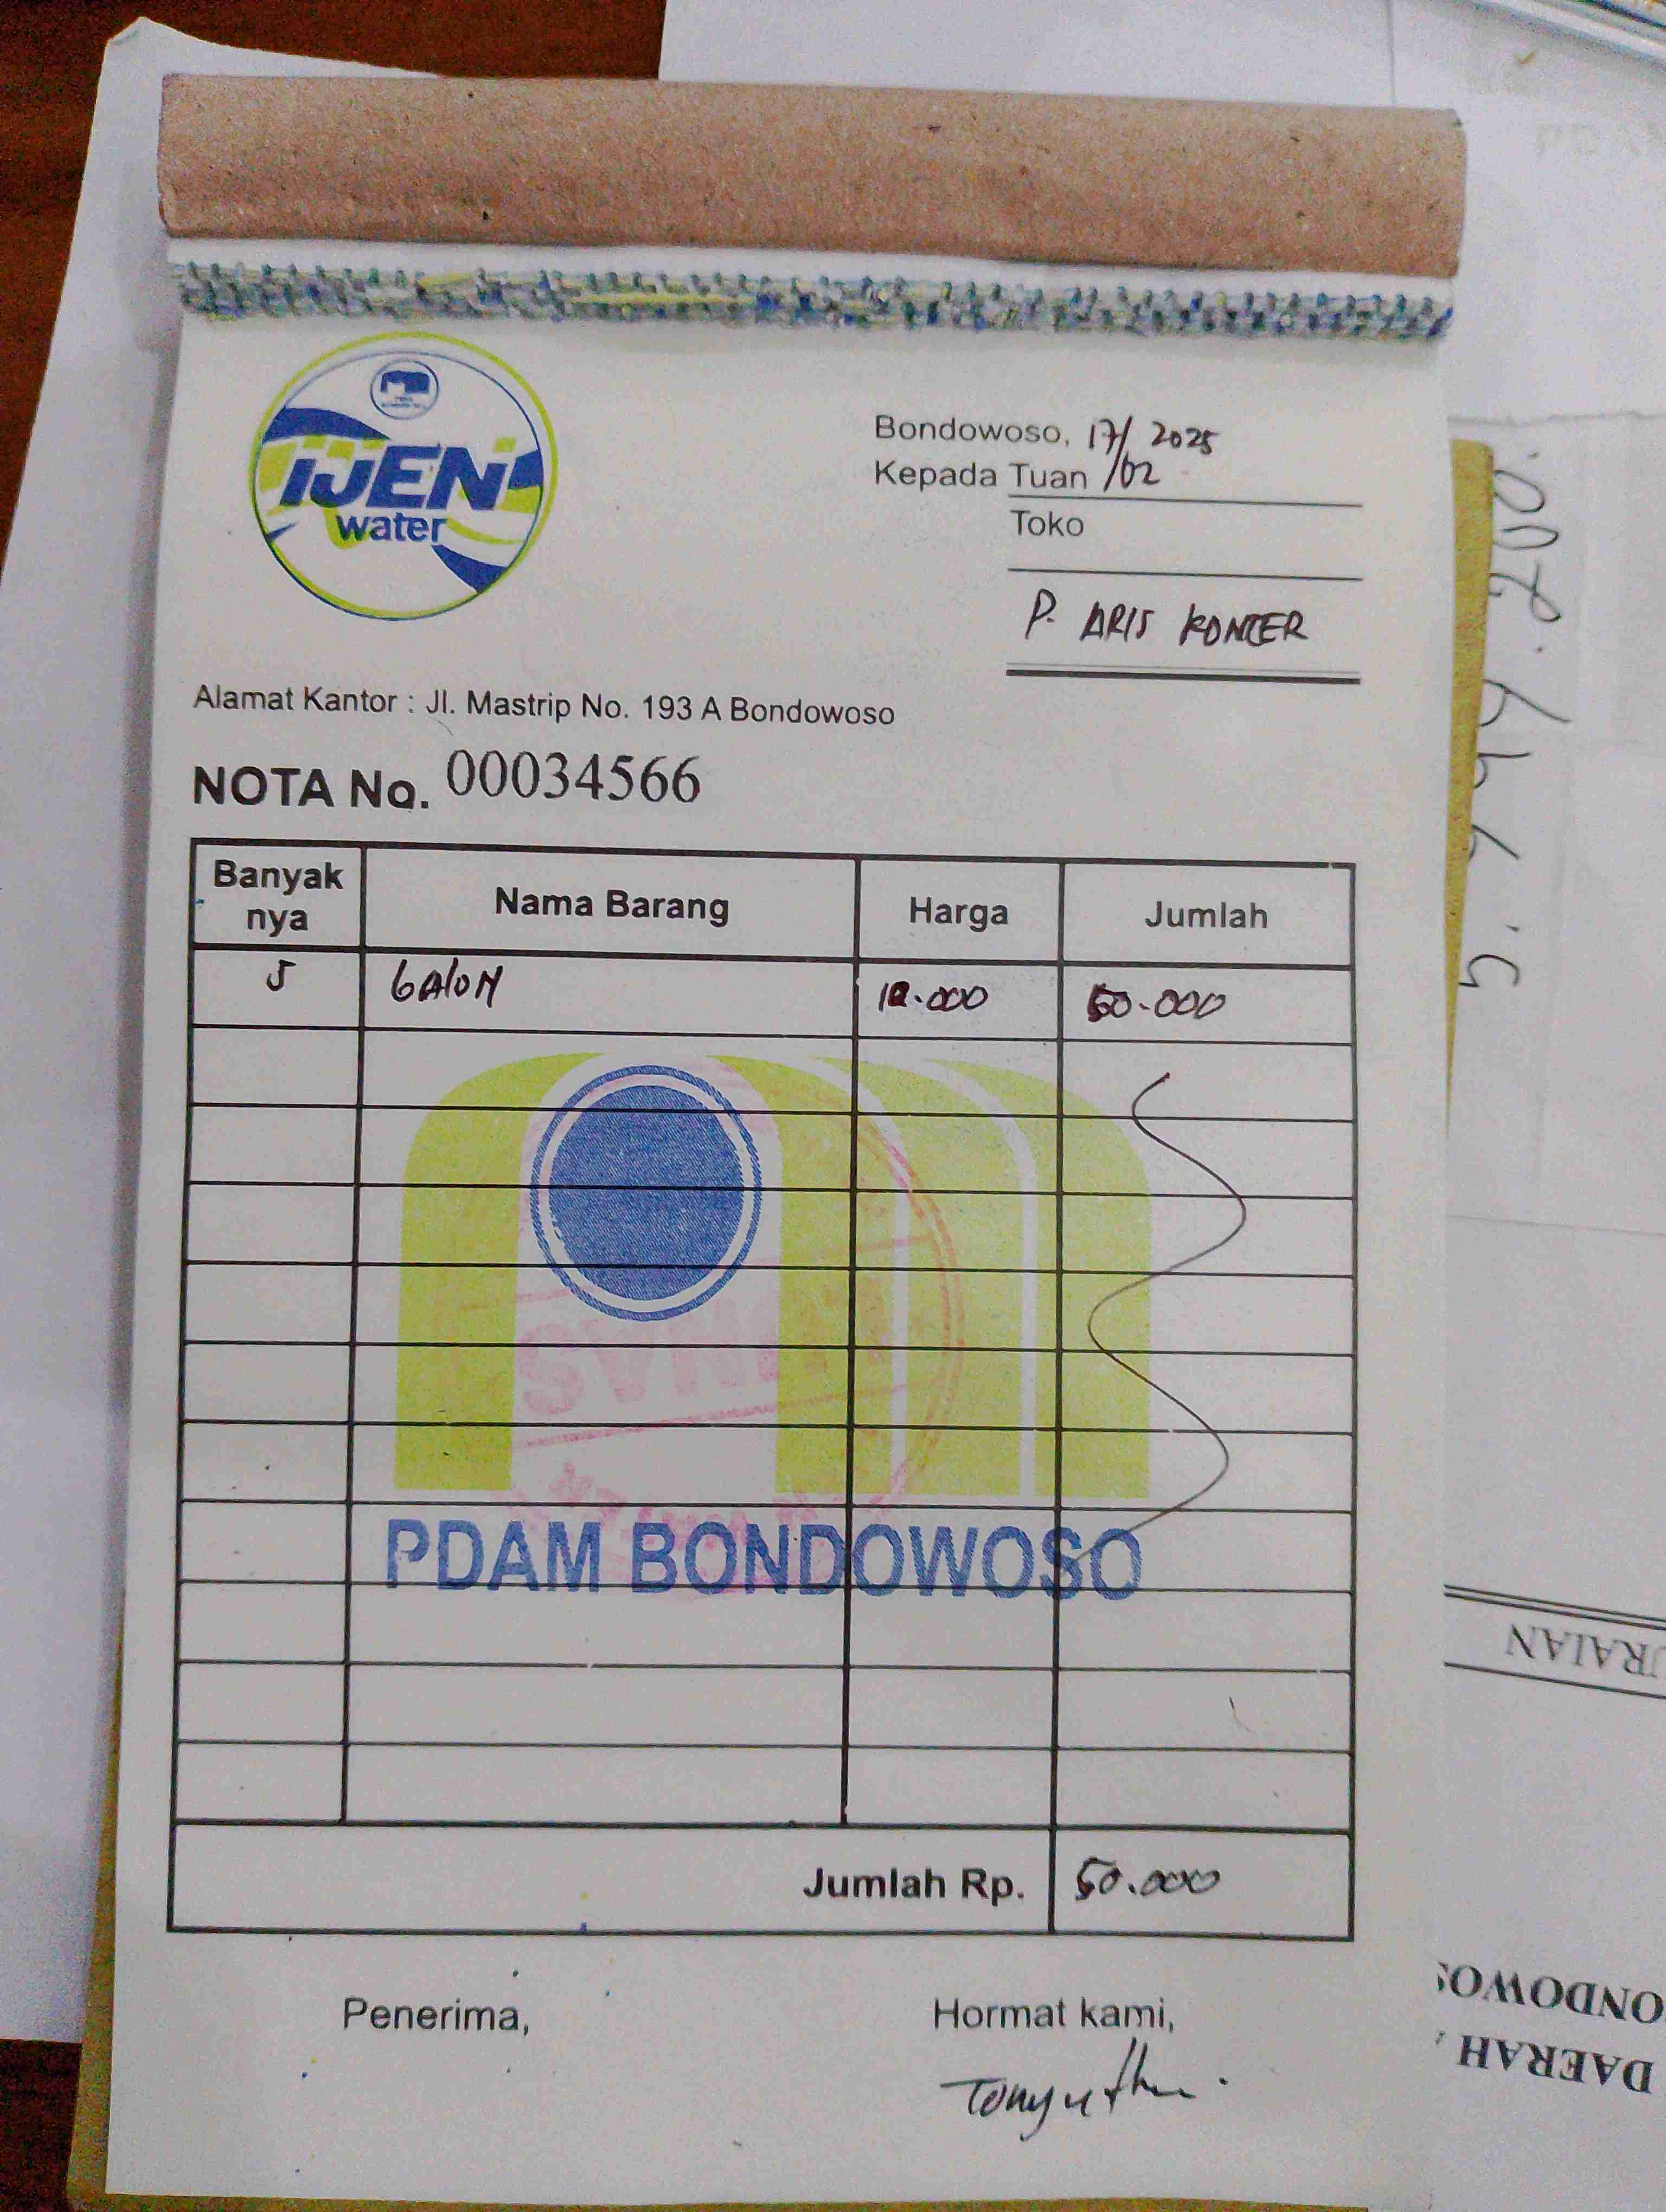 IJEN
water
Bondowoso, 17/02 2025
Kepada Tuan
Toko
P. ARIS KONCER
Alamat Kantor : Jl. Mastrip No. 193 A Bondowoso
NOTA No. 00034566
Banyak nya Nama Barang Harga Jumlah
5 GALON 10.000 50.000
PDAM BONDOWOSO
Jumlah Rp. 50.000
Penerima, Hormat kami,
URAIAN
ONDOWOS
DAERAH